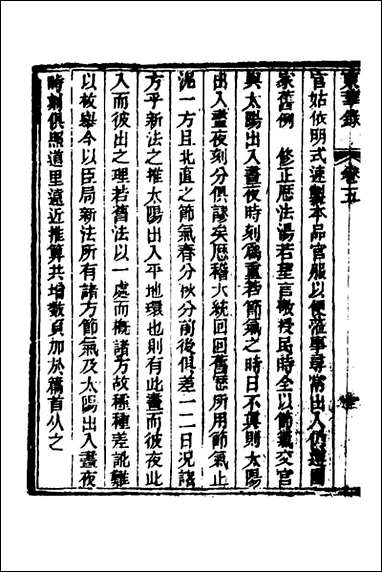 東華錄 卷十五
官姑依明式速製本品官服以便涖事尋常出入仍遵國
家舊例 修正厯法湯若望言敬授民時全以節氣交宮
與太陽出入晝夜時刻爲重若節氣之時日不眞則太陽
出入晝夜刻分俱謬矣厯稽大統回回舊厯所用節氣止
泥一方且北直之節氣春分秋分前後俱差一二日況諸
方乎新法之推太陽出入平地環也則有此晝而彼夜此
入而彼出之理若舊法以一處而概諸方故種種差訛難
以枚舉今以臣局新法所有諸方節氣及太陽出入晝夜
時刻俱照道里遠近推算共增數頁加於篇首从之